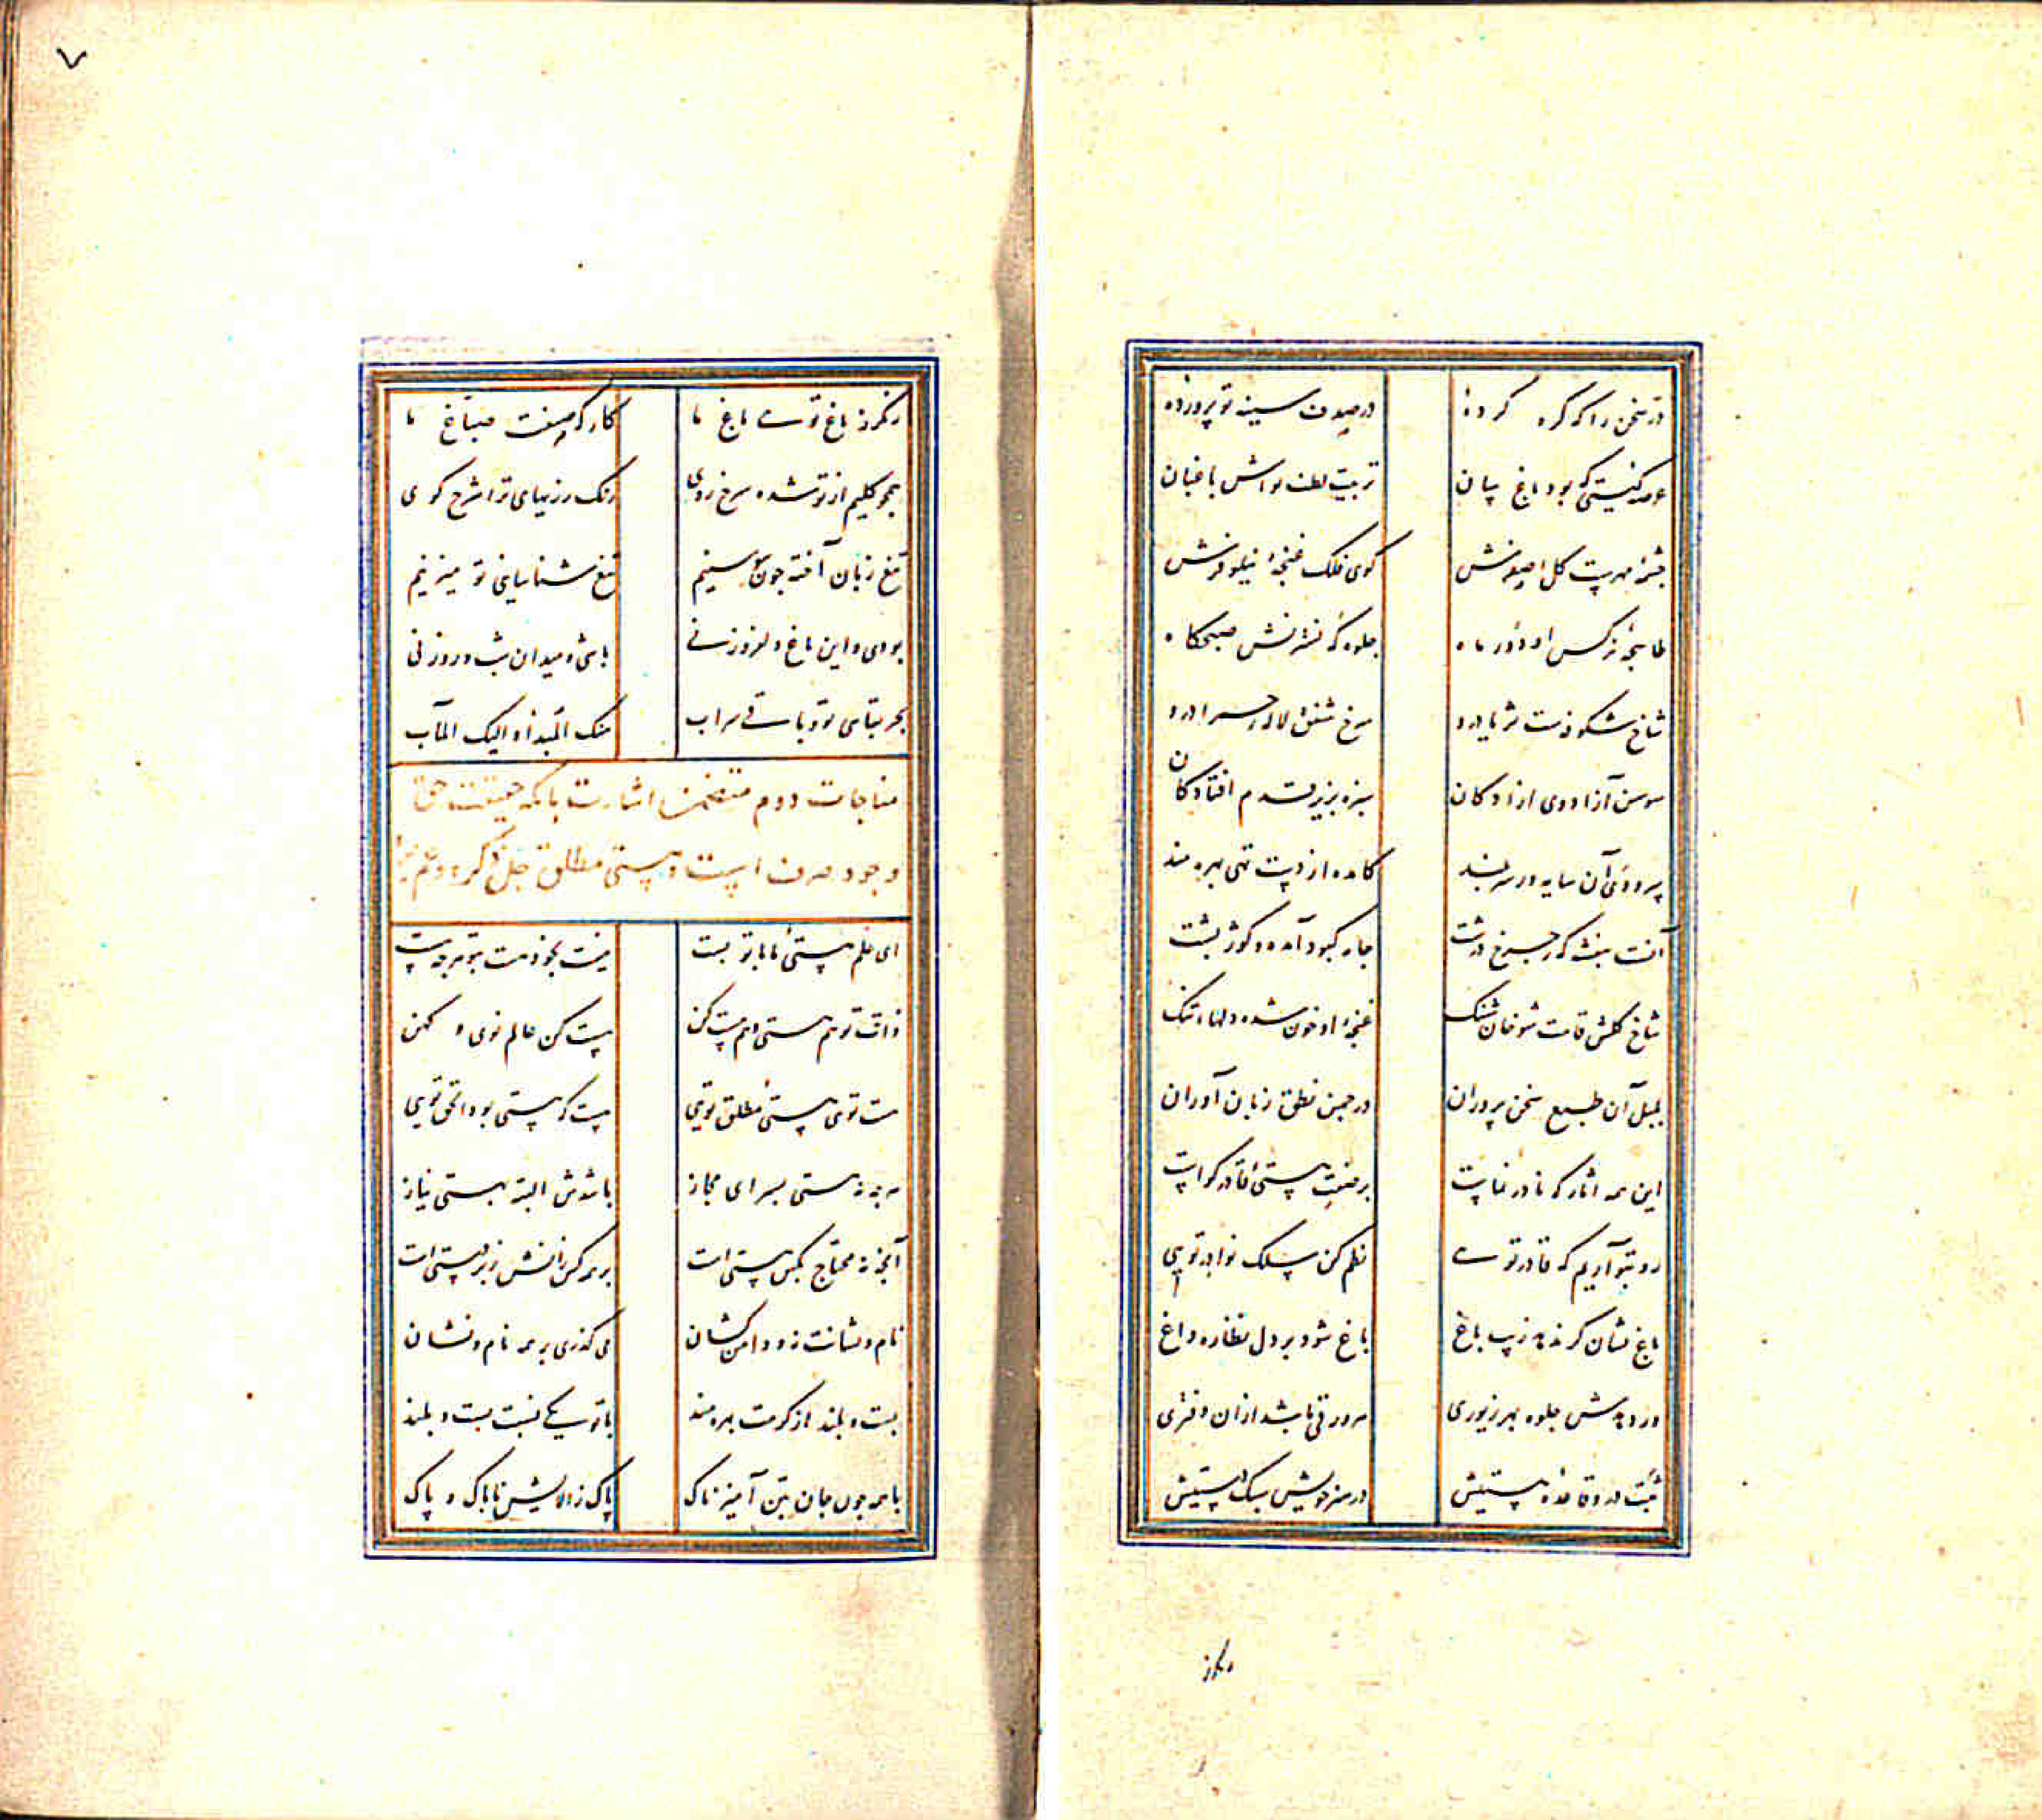 در سخن را که گره کردهٔ در صدف سینه تو پروردهٔ
عرصه گیتی که بود باغ سان تربیت لطف تواش باغبان
چشمهٔ مهرست گل اصفرش گوی فلک غنچهٔ نیلوفرش
طاسچهٔ نرگس او دور ماه جلوه گه نسترنش صبحگاه
شاخ شکوفه ست ثریا درو سرخ شفق لالهٔ حمرا درو
سوسن آزاد وی ازادگان سبزه بزیر قدم افتادگان
سرو وی آن سایه ور سربلند کامده از دست تهی بهره مند
بنفشه که ز چرخ درشت جامه کبود آمده و کوژ پشت
شاخ گلش قامت شوخان شنگ غنچهٔ او خون شده دلهاء تنگ
بلبل آن طبع سخن پروران در چمن نطق زبان آوران
این همه اثار که نادر نماست بر صفت هستی قادر گواست
رو بتو آریم که قادر تویی نظم کن سلک نوادر تویی
باغ نشان گر ندهد زیب باغ باغ شود بر دل نظاره داغ
ور دهدش جلوه بهر زیوری هر ورقی باشد ازان دفتری
ثبت درو قاعدهٔ هستیش در هنر خویش سبک دستیش
رنگرز
۷
رنگرز باغ تویی باغ ما کارگه صنعت صباغ ما
همچو گلیم از تو شده سرخ روی رنگ رزیهای ترا شرح گوی
تیغ زبان آخته چون سوسنیم تیغ شناسایی تو میزنیم
بودی و این باغ دلفروز نی باشی و میدان شب و روز نی
بحر بقایی تو و باقی سراب منک المبدأ و الیک المآب
مناجات دوم متضمن اشارت بانکه حقیقت حق
وجود صرف است و هستی مطلق جل ذکره و عم
ای علم هستی ما با تو بست نیست بخود هست بتو هرچه هست
ذات تو هم هستی و هم هست کن هست کن عالم نوی و کهن
هست توی هستی مطلق تویی هست که هستی بود الحق تویی
هرچه نه هستی بسرای مجاز باشدش البته بهستی نیاز
آنچه نه محتاج بکس هستی است بر همه کس زانش زبردستی است
نام و نشانت نه و دامن کشان می گذری بر همه نام و نشان
پست و بلند از کرمت بهره مند با تو یکی نسبت پست و بلند
با همه چون جان بتن آمیزناک پاک ز آلایش ناپاک و پاک